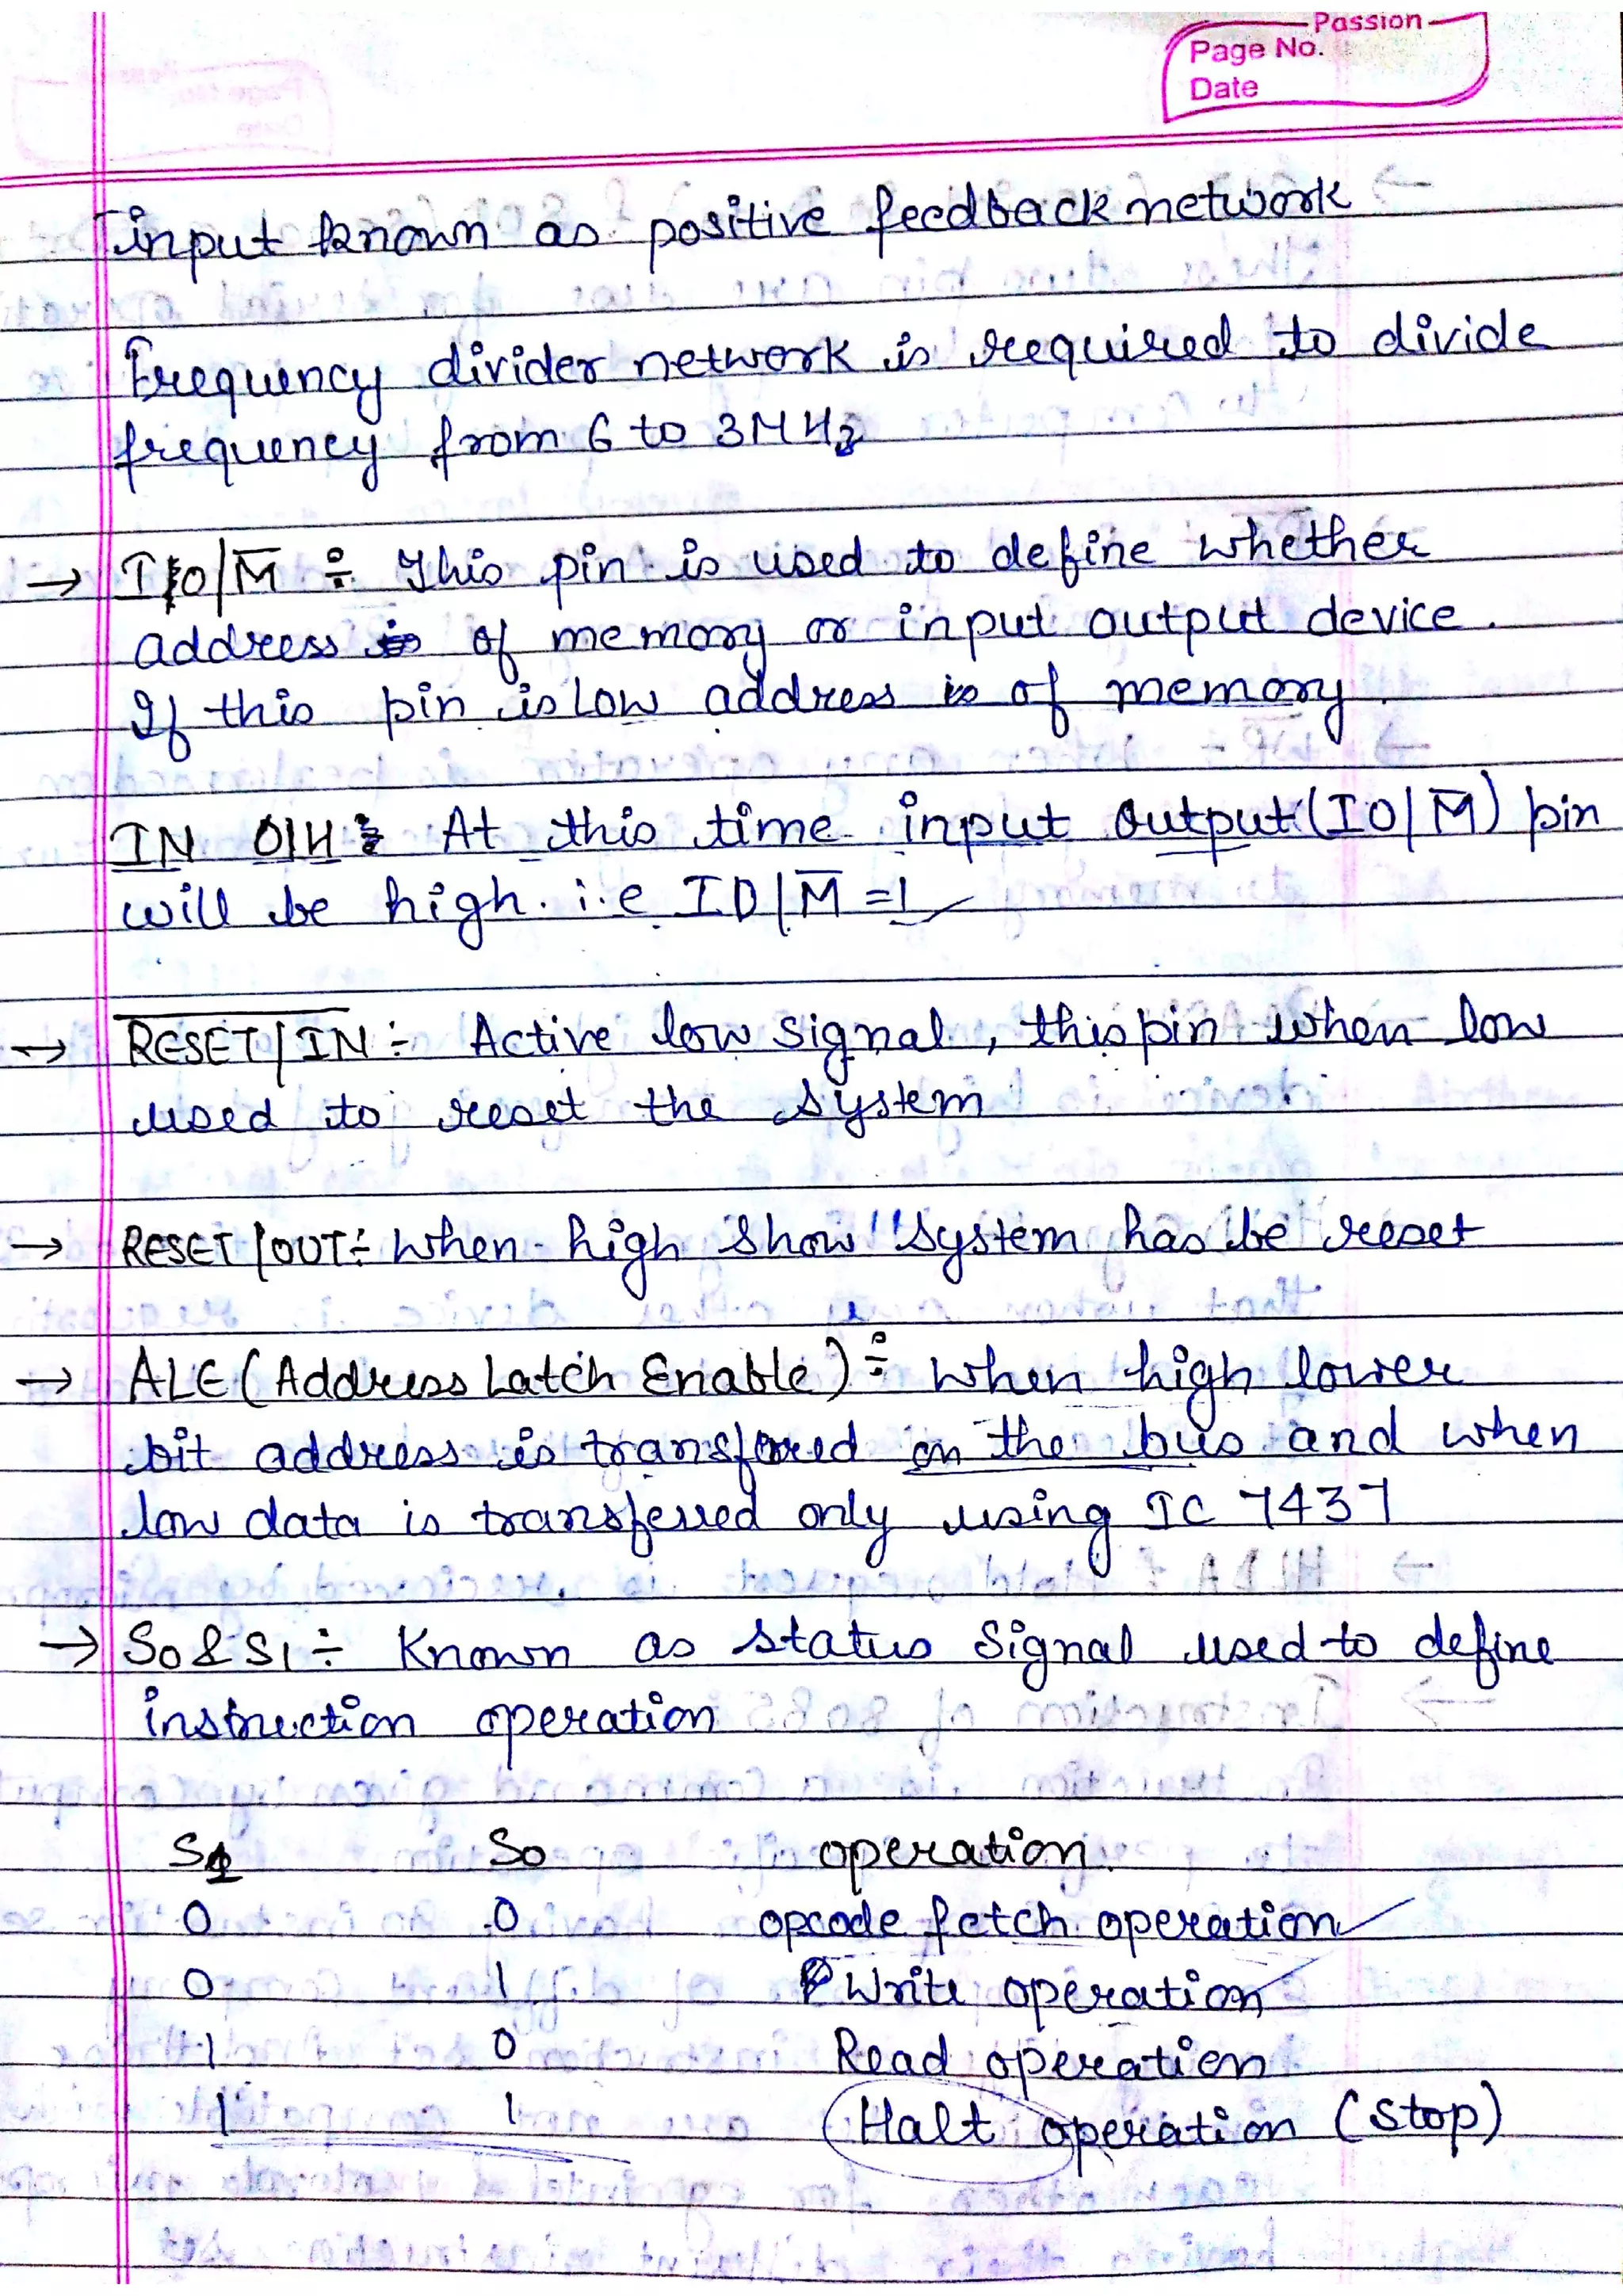 Passion
Page No.
Date
input known as positive feedback network
Frequency divider network is required to divide
frequency from 6 to 3MHz
→ IO/M̅ ÷ This pin is used to define whether
address of memory or input output device.
If this pin is low address is of memory
IN 01H : At this time input output (IO/M̅) pin
will be high. i.e IO/M̅ = 1
→ R̅E̅S̅E̅T̅/I̅N̅ ÷ Active low signal, this pin when low
used to reset the system
→ RESET/OUT ÷ when high show "system has be reset
→ ALE (Address Latch Enable) ÷ when high lower
bit address is transfored on the bus and when
low data is transferred only using IC 7437
→ S0 & S1 ÷ Known as status signal used to define
instruction operation
S1 S0 operation
0 0 opcode fetch operation
0 1 Write operation
1 0 Read operation
1 1 Halt operation (stop)